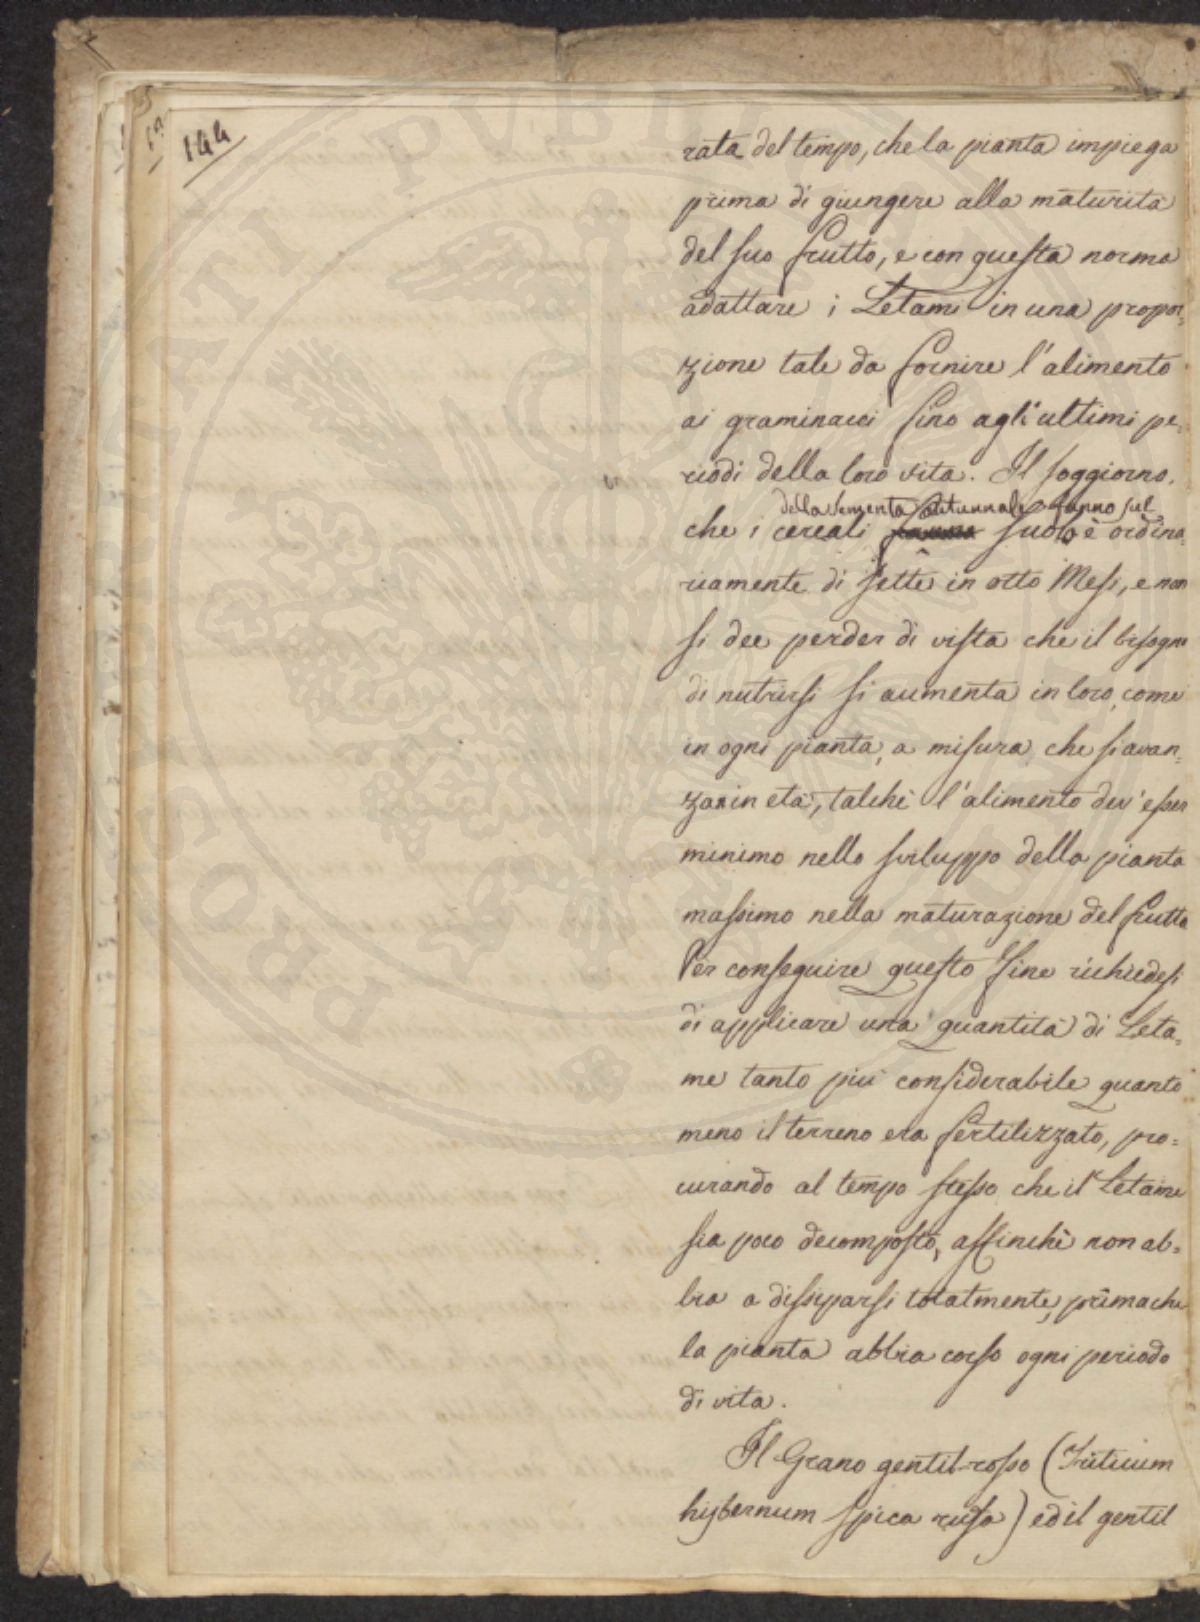 144
rata del tempo, che la pianta impiega
prima di giungere alla maturità
del suo frutto, e con questa norma
adattare i Letami in una propor=
zione tale da fornire l'alimento
ai graminacei fino agli ultimi pe=
riodi della loro vita. Il soggiorno,
della sementa autunnale fanno sul
che i cereali suolo è ordina=
riamente di sette in otto Mesi, e non
si dee perder di vista che il bisogno
di nutrirsi si aumenta in loro, come
in ogni pianta, a misura, che si avan=
za in età, talchè l'alimento dev'esser
minimo nello sviluppo della pianta
massimo nella maturazione del frutto
Per conseguire questo fine richiedesi
di applicare una quantità di Leta=
me tanto più considerabile quanto
meno il terreno era fertilizzato, pro=
curando al tempo stesso che il Letame
sia poco decomposto, affinchè non ab=
bia a dissiparsi totalmente, prima che
la pianta abbia corso ogni periodo
di vita.
Il Grano gentil-rosso (Triticum
hybernum spica rufa) ed il gentil
PROSPERITATI PUBLICAE